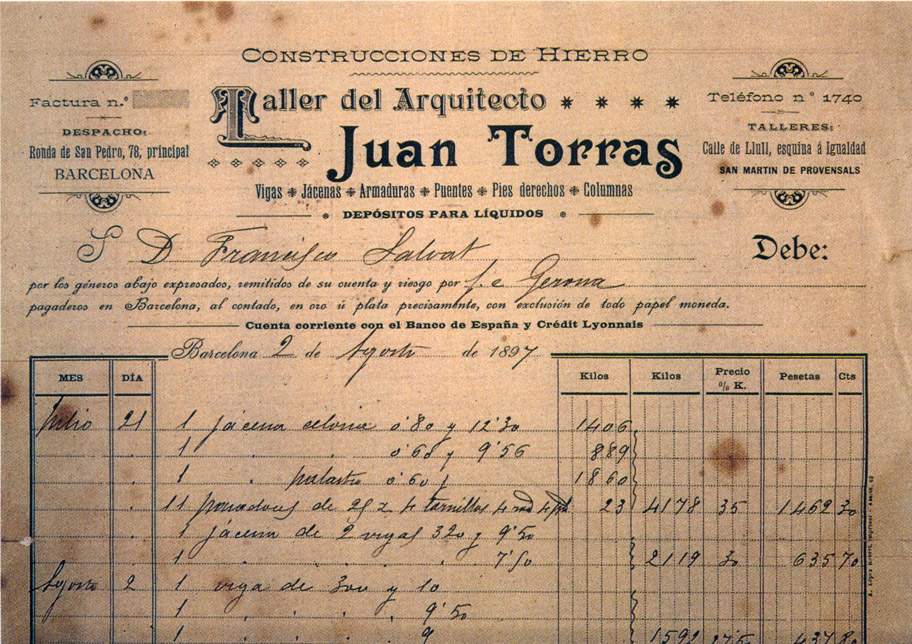 Construcciones de Hierro
Factura n.º
Taller del Arquitecto
Teléfono n º 1740
DESPACHO:
Ronda de San Pedro, 78, principal
BARCELONA
Juan Torras
TALLERES:
Calle de Llull, esquina á Igualdad
SAN MARTIN DE PROVENSALS
Vigas Jácenas Armaduras Puentes Pies derechos Columnas
DEPÓSITOS PARA LÍQUIDOS
S D Francisco Salvat Debe:
por los géneros abajo expresados, remitidos de su cuenta y riesgo por f. c Gerona
pagaderos en Barcelona, al contado, en oro ú plata precisamente, con exclusión de todo papel moneda.
Cuenta corriente con el Banco de España y Crédit Lyonnais
Barcelona 2 de Agosto de 1897
MES DÍA Kilos Kilos Precio % K. Pesetas Cts
Julio 21 1 jácena celosia 0'80 y 12'30 1406
1 0'60 y 9'56 889
1 palastro 0'60 1860
11 de 4 tornillos 4 23 4178 35 1462 30
1 jácena de 2 vigas 320 y 9'50
1 7'50 2119 30 635 70
Agosto 2 1 viga de 300 y 10
1 9'50
1 9 1592 27'5 437 80